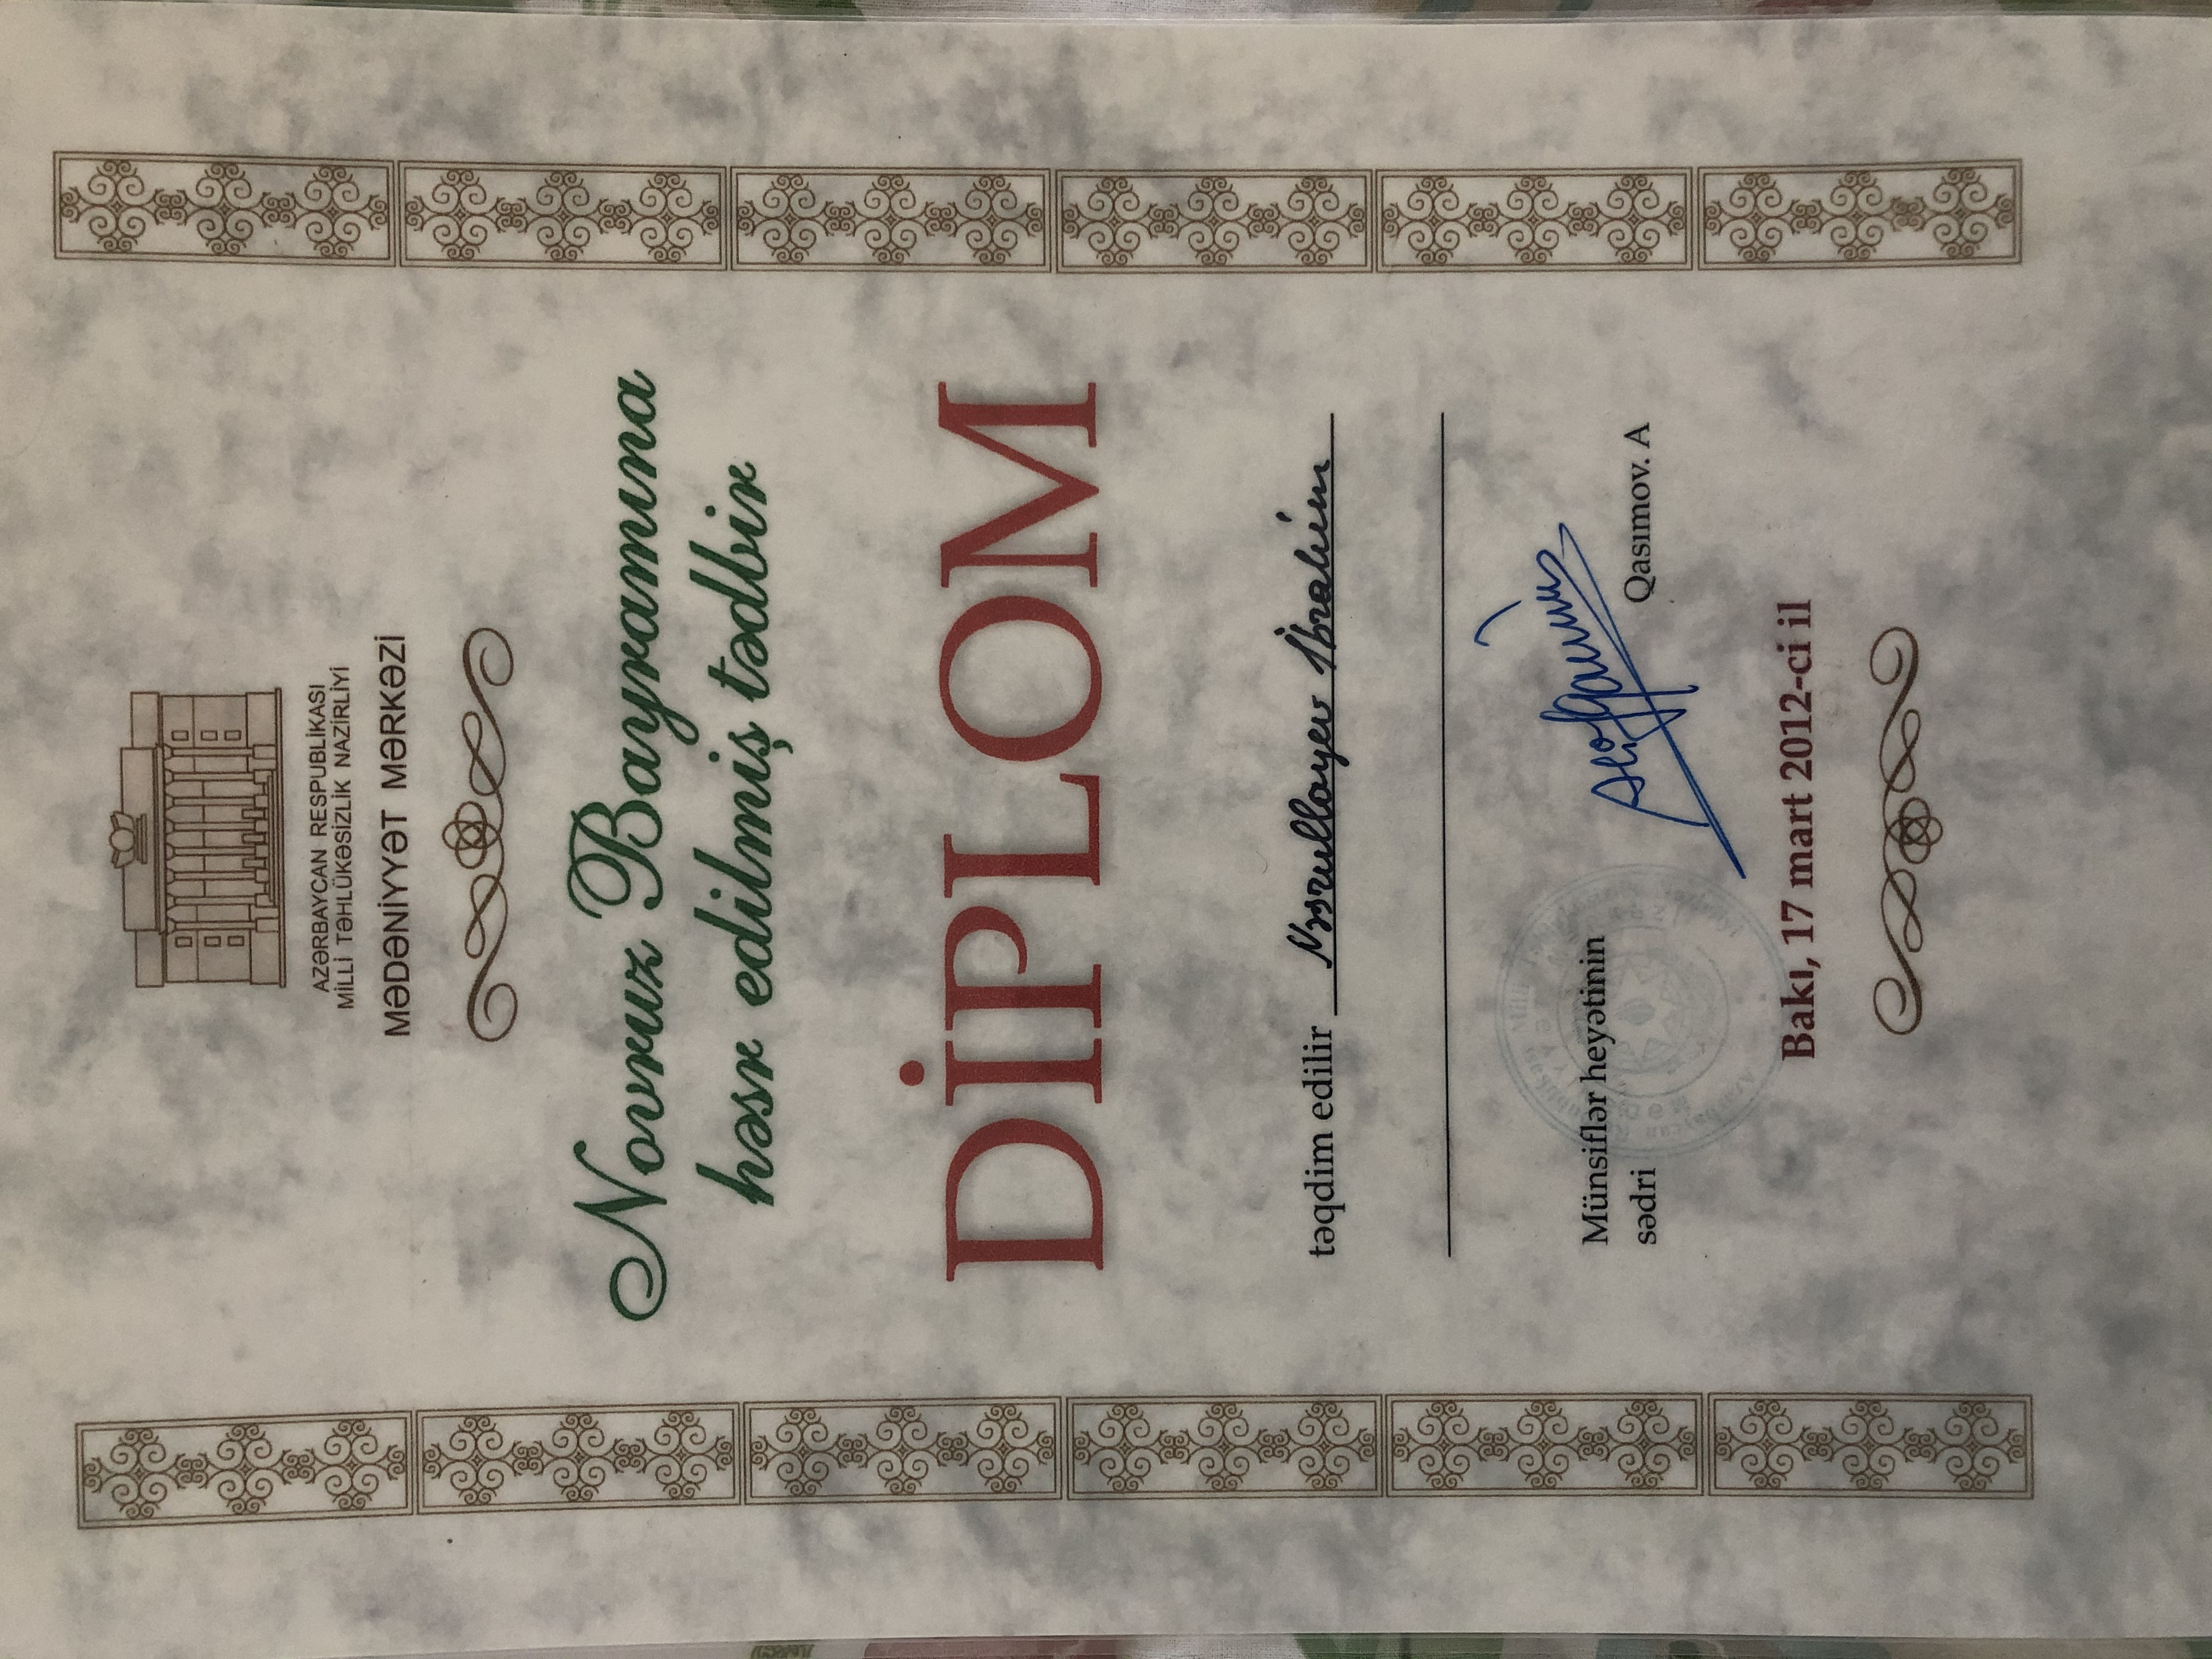 AZƏRBAYCAN RESPUBLİKASI
MİLLİ TƏHLÜKƏSİZLİK NAZİRLİYİ
MƏDƏNİYYƏT MƏRKƏZİ
Novruz Bayramına
həsr edilmiş tədbir
DİPLOM
təqdim edilir Nəsrullayev İbrahim
Münsiflər heyətinin
sədri
Qasımov. A
Bakı, 17 mart 2012-ci il